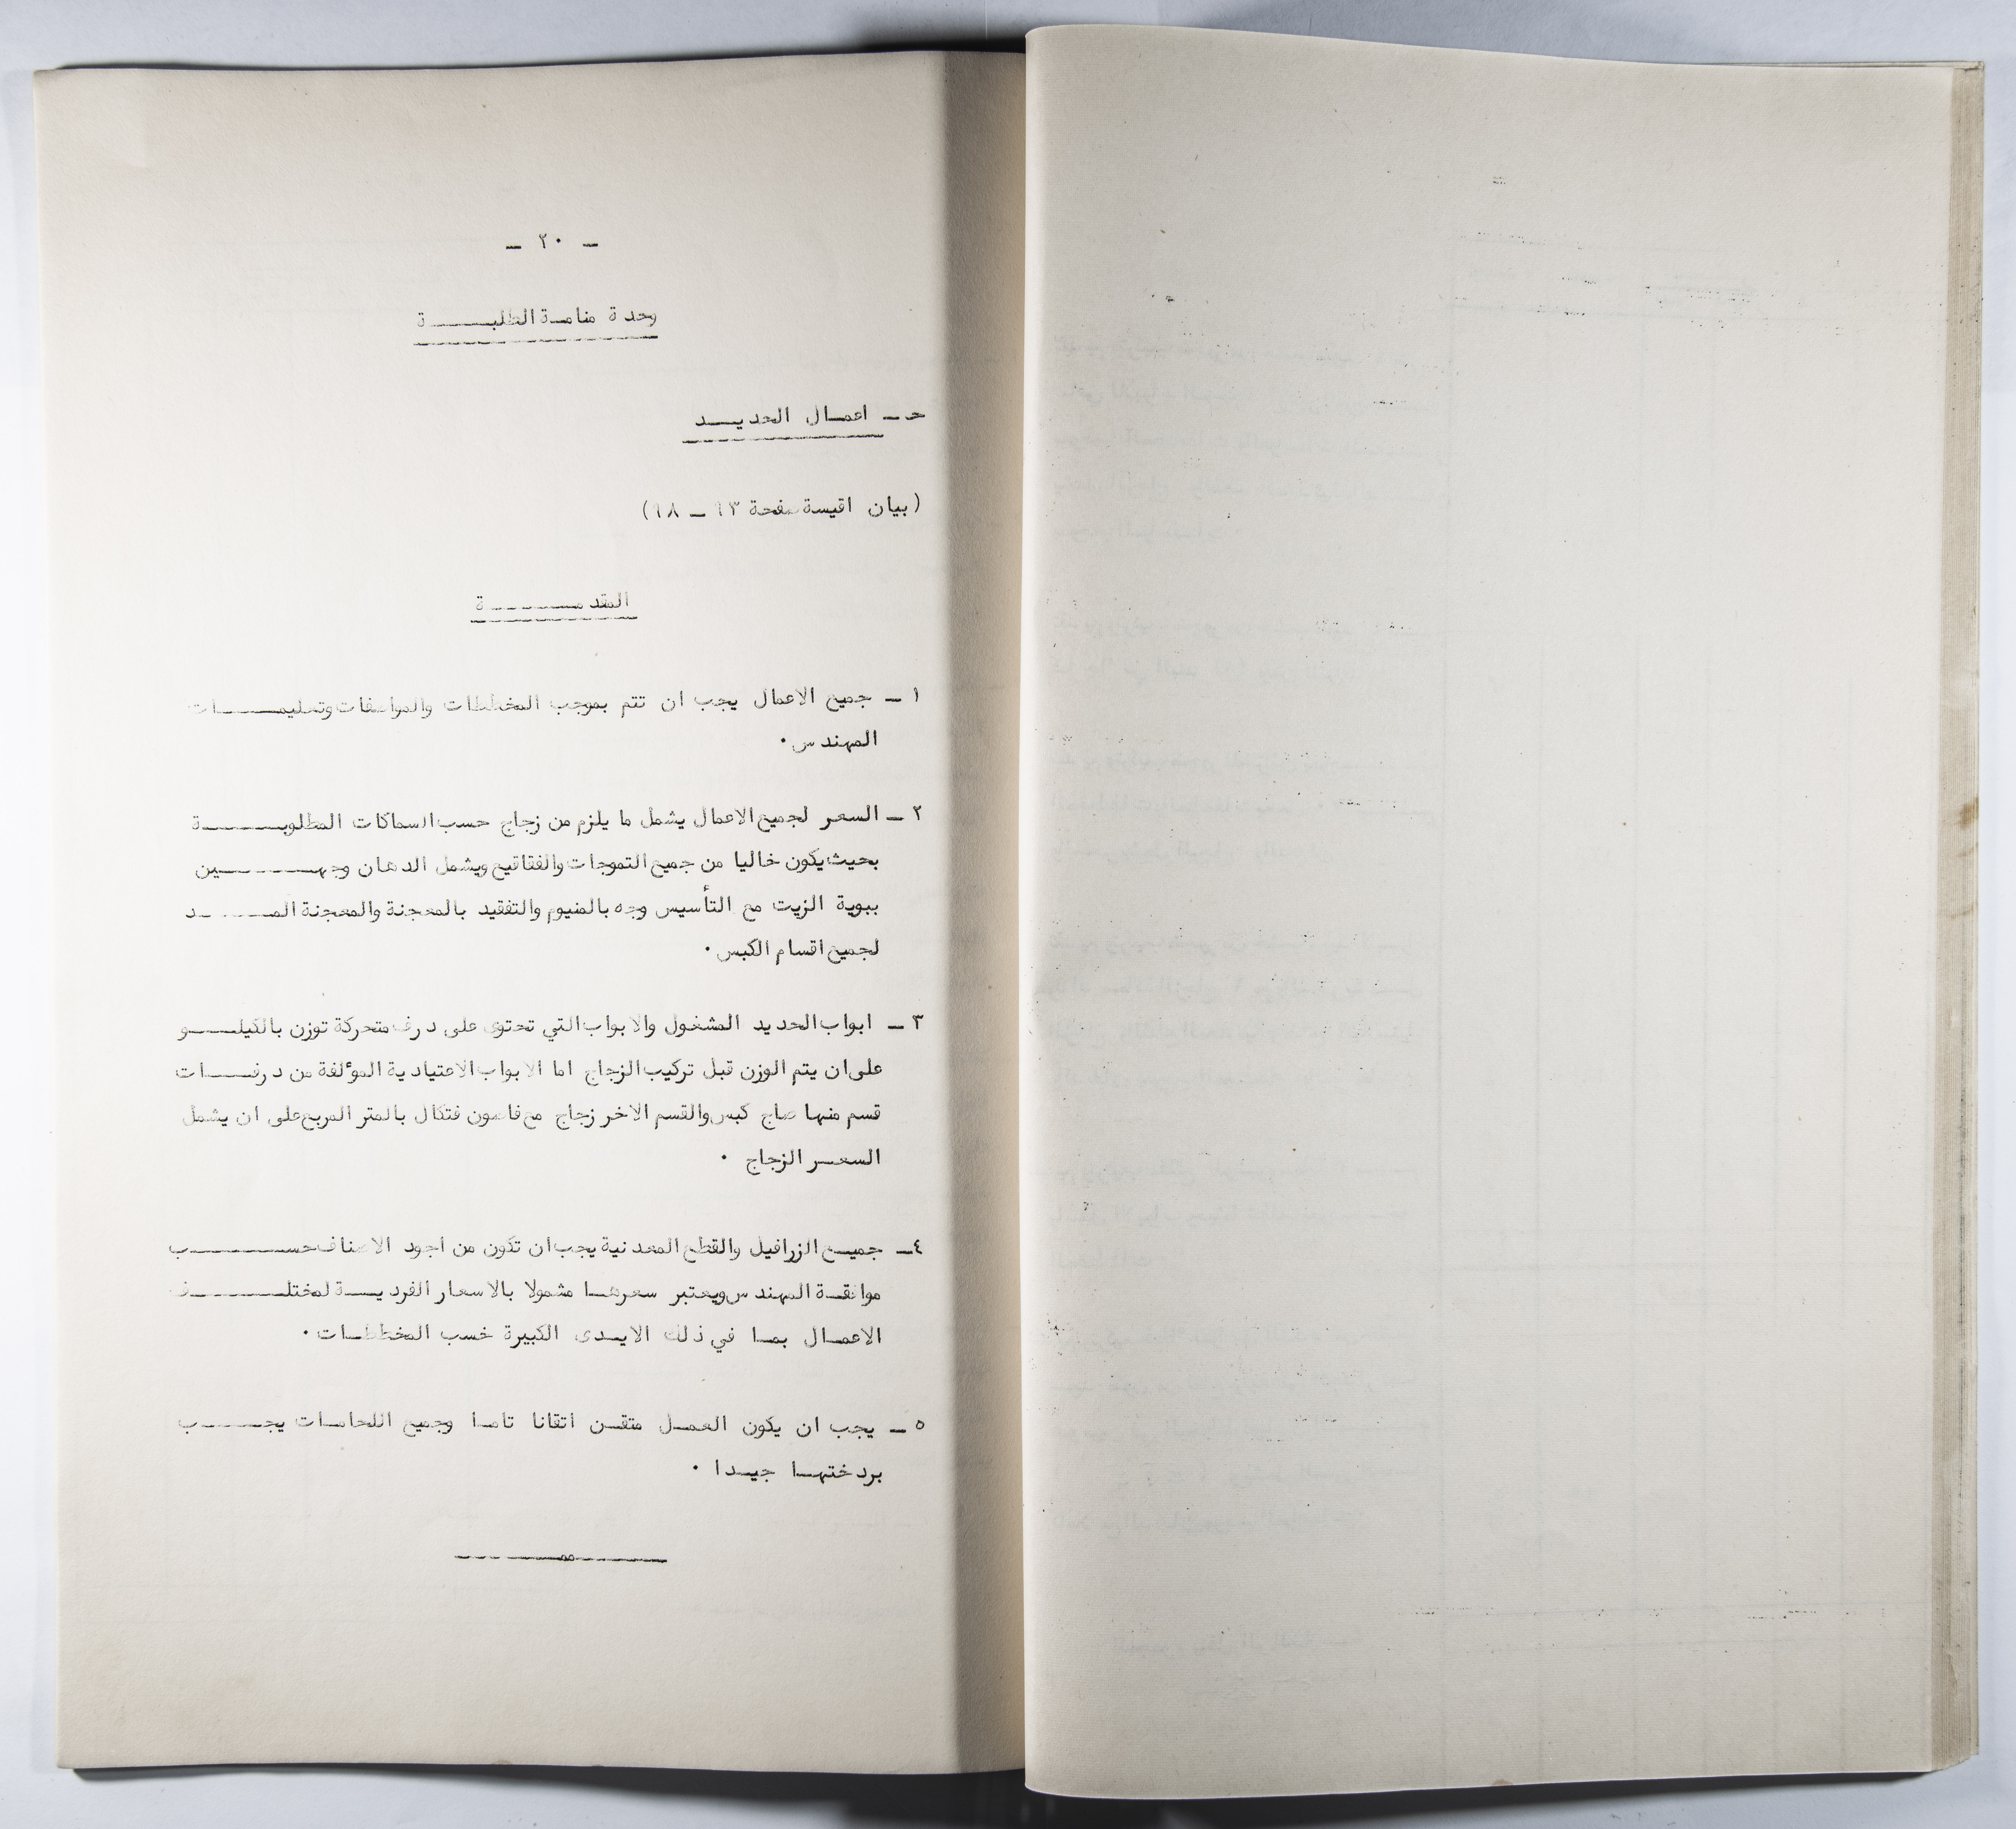 - ٢٠ -
وحدة منامة الطلبة
حـ - اعمال الحديد
(بيان اقيسة صفحة ١٣ - ١٨)
المقدمة
١ - جميع الاعمال يجب ان تتم بموجب المخططات والمواصفات وتعليمات
المهندس.
٢ - السعر لجميع الاعمال يشمل ما يلزم من زجاج حسب السماكات المطلوبة
بحيث يكون خاليا من جميع التموجات والفقاقيع ويشمل الدهان وجهين
ببوية الزيت مع التأسيس وجه بالمنيوم والتفقيد بالمعجنة والمعجنة المد
لجميع اقسام الكبس.
٣ - ابواب الحديد المشغول والابواب التي تحتوى على درف متحركة توزن بالكيلو
على ان يتم الوزن قبل تركيب الزجاج اما الابواب الاعتيادية المؤلفة من درفات
قسم منها صاج كبس والقسم الاخر زجاج مع فاصون فتكال بالمتر المربع على ان يشمل
السعر الزجاج .
٤ - جميع الزرافيل والقطع المعدنية يجب ان تكون من اجود الاصناف حسب
موافقة المهندس ويعتبر سعرها مشمولا بالاسعار الفردية لمختلف
الاعمال بما في ذلك الايدى الكبيرة خسب المخططات .
٥ - يجب ان يكون العمل متقن اتقانا تاما وجميع اللحامات يجب
بردختها جيدا .